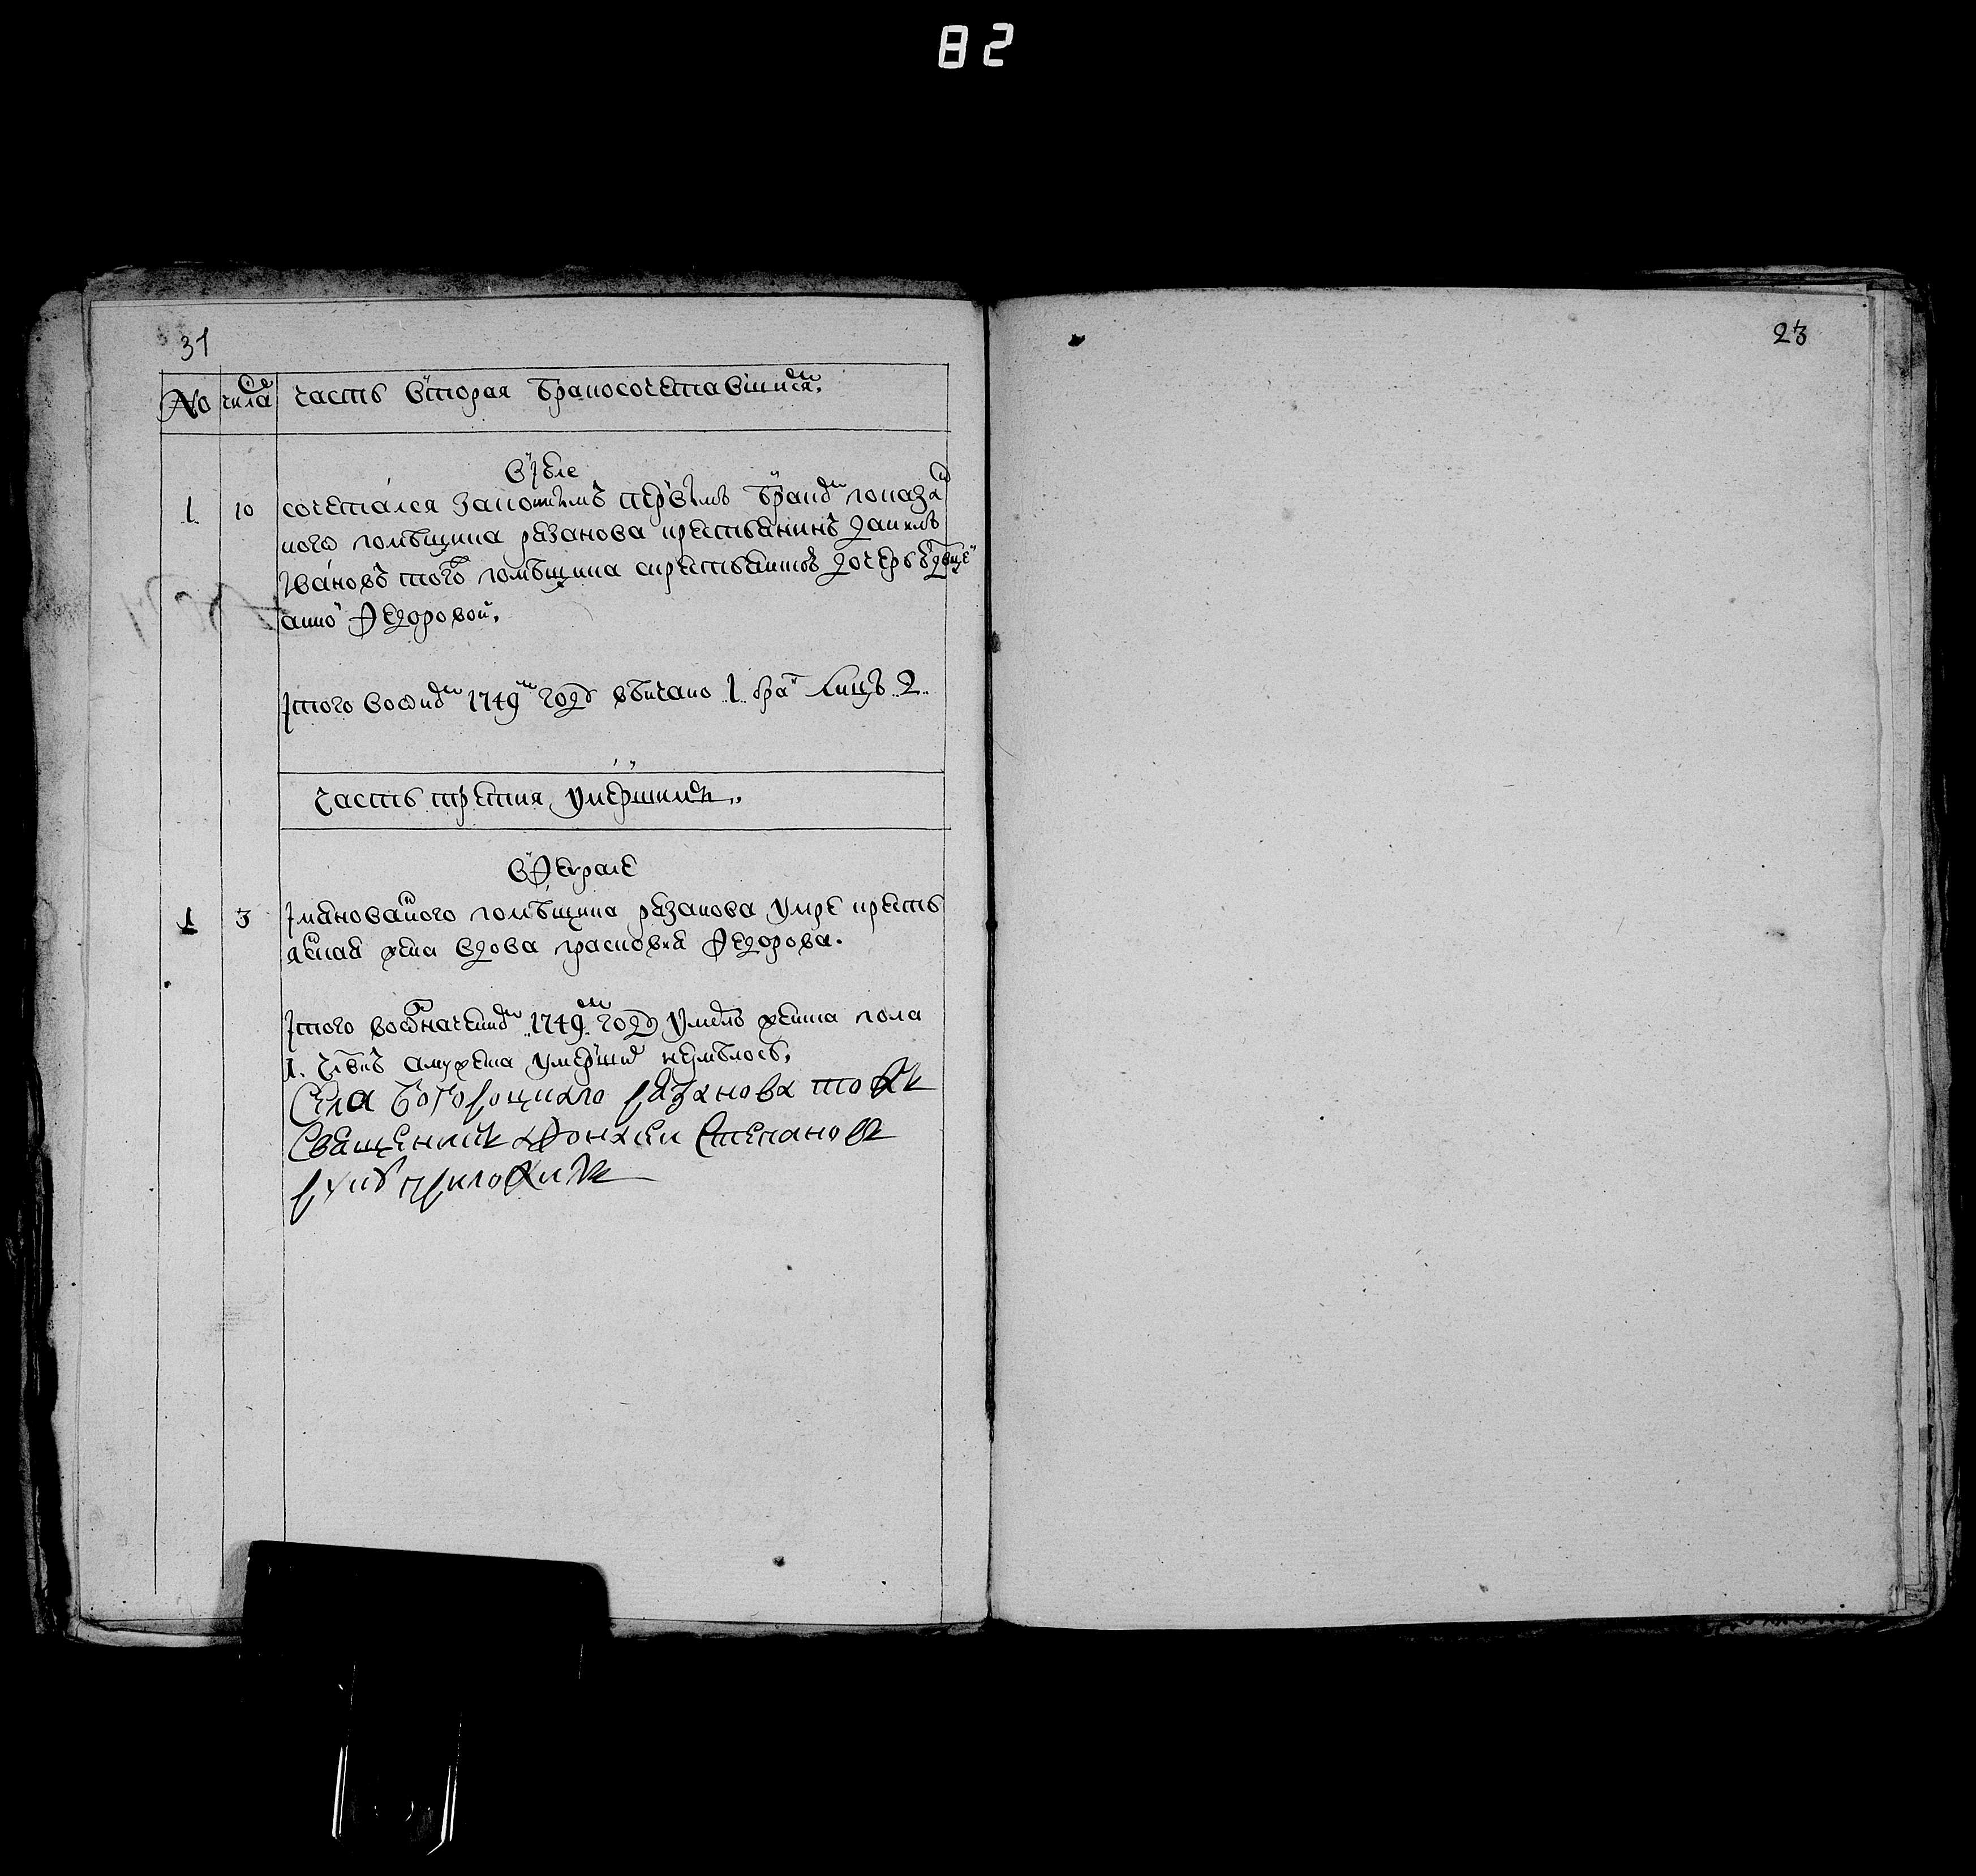 82
31
23
No числа часть вторая бракосочетавшихся.
в Июле
1 10 сочетался законнымъ первымъ бракомъ показан
ного помѣщика рязанова крестьянинъ Данилъ
Ивановъ того помѣщика скрестьянскою дочерью девице
анною Федоровой.
Итого во оном 1749м году венчано 1 бракъ лицъ 2
Часть третия умершихъ
в Феврале
1 3 Имянованного помѣщика рязанова умре кресть
янская жена вдова прасковья Федорова.
Итого во означенномъ 1749м году умерло женска пола
1. члвкъ а мужеска умерших не имѣлось,
Села Богороцкаго рязанова тожъ
Священникъ Афонасеи Степановъ
руку приложилъ